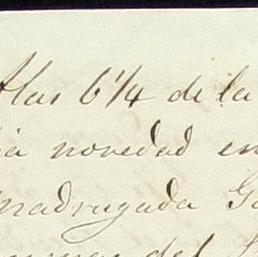 A las 6 1/4 de la
ia novedad en
madrugada Ga
del